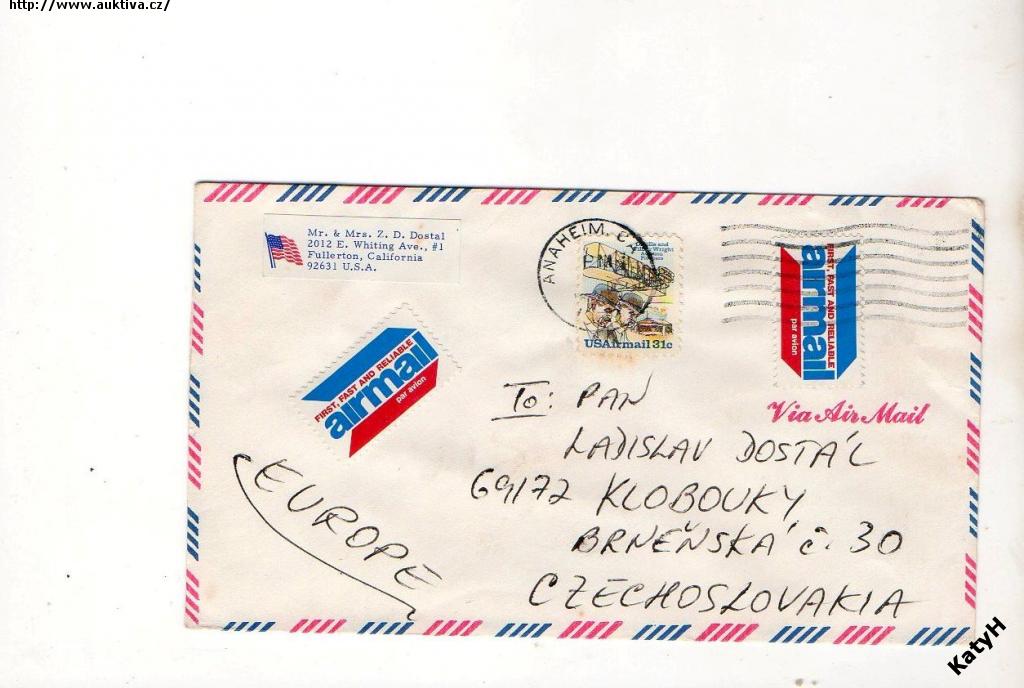 http://www.auktiva.cz/
Mr. & Mrs. Z. D. Dostal
2012 E. Whiting Ave., #1
Fullerton, California
92631 U.S.A.
ANAHEIM, CA
PM
Orville and
Wilbur Wright
USAirmail 31c
FIRST, FAST AND RELIABLE
airmail
par avion
FIRST, FAST AND RELIABLE
airmail
par avion
Via Air Mail
To: PAN
LADISLAV DOSTÁL
69172 KLOBOUKY
BRNĚNSKÁ č. 30
CZECHOSLOVAKIA
EUROPE
KatyH